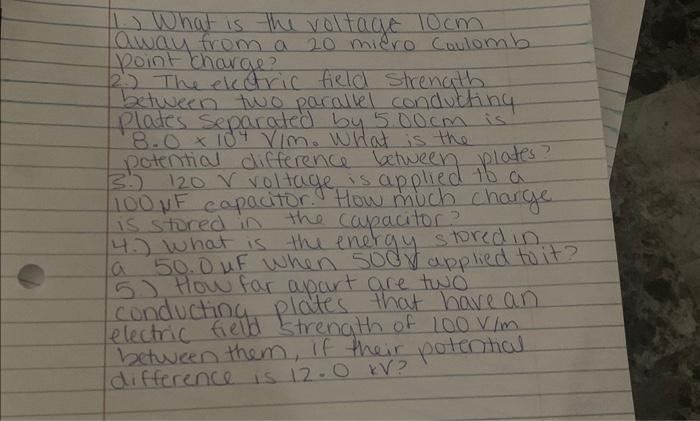 1.) What is the voltage 10cm
away from a 20 micro Coulomb
point charge?
2.) The electric field strength
between two parallel conducting
plates separated by 5.00cm is
8.0 x 10⁴ V/m. What is the
potential difference between plates?
3.) 120 V voltage is applied to a
100 µF capacitor. How much charge
is stored in the capacitor?
4.) what is the energy stored in
a 50.0 µF when 500V applied to it?
5.) How far apart are two
conducting plates that have an
electric field strength of 100 V/m
between them, if their potential
difference is 12.0 kV?